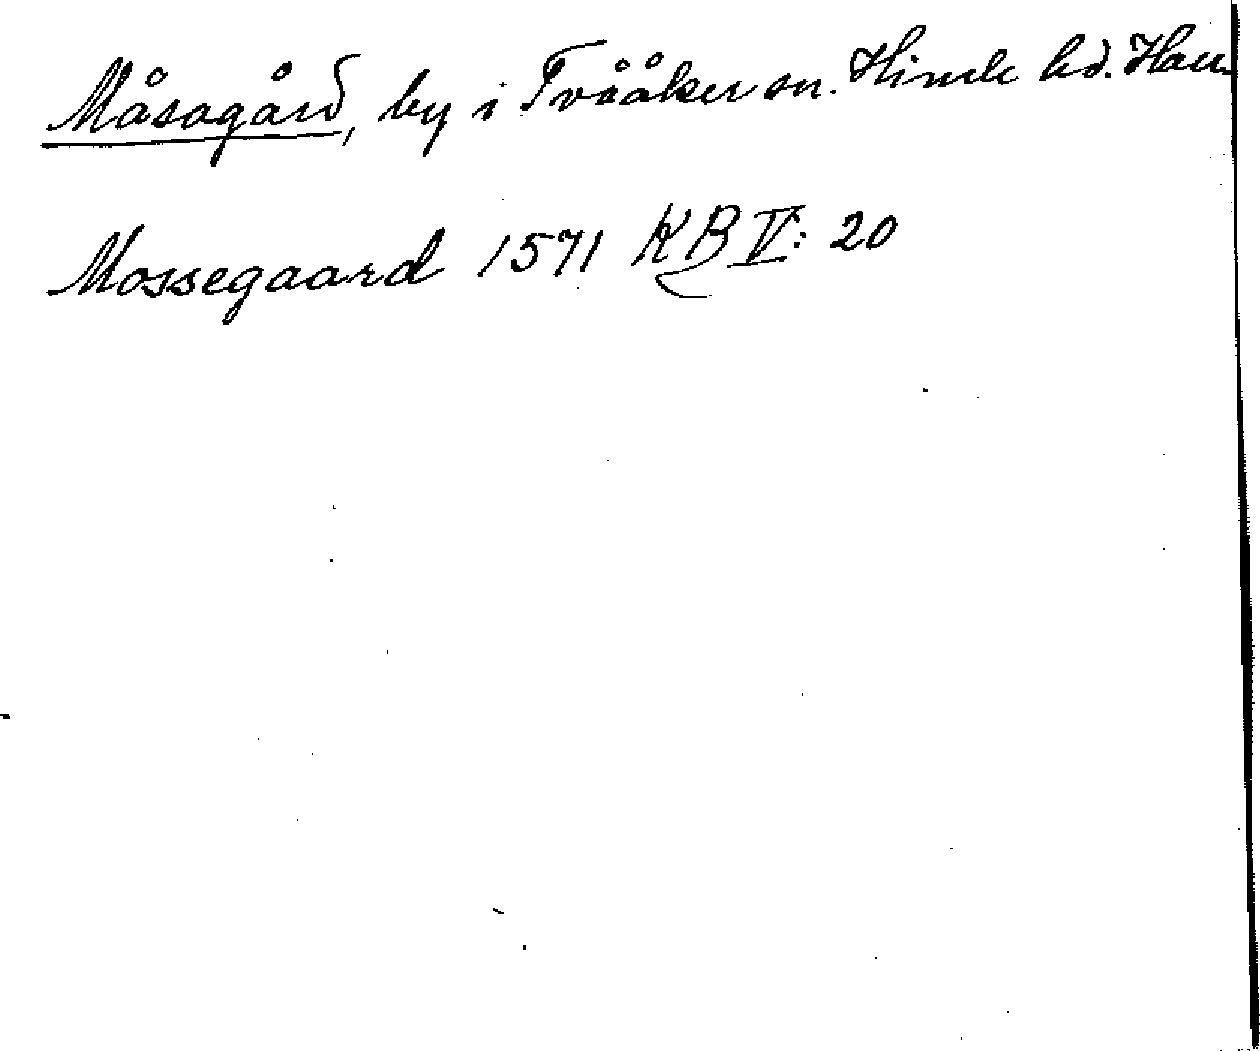 Måsagård, by i Tvååker sn. Himle hd. Hall.
Mossegaard 1571 KB V: 20